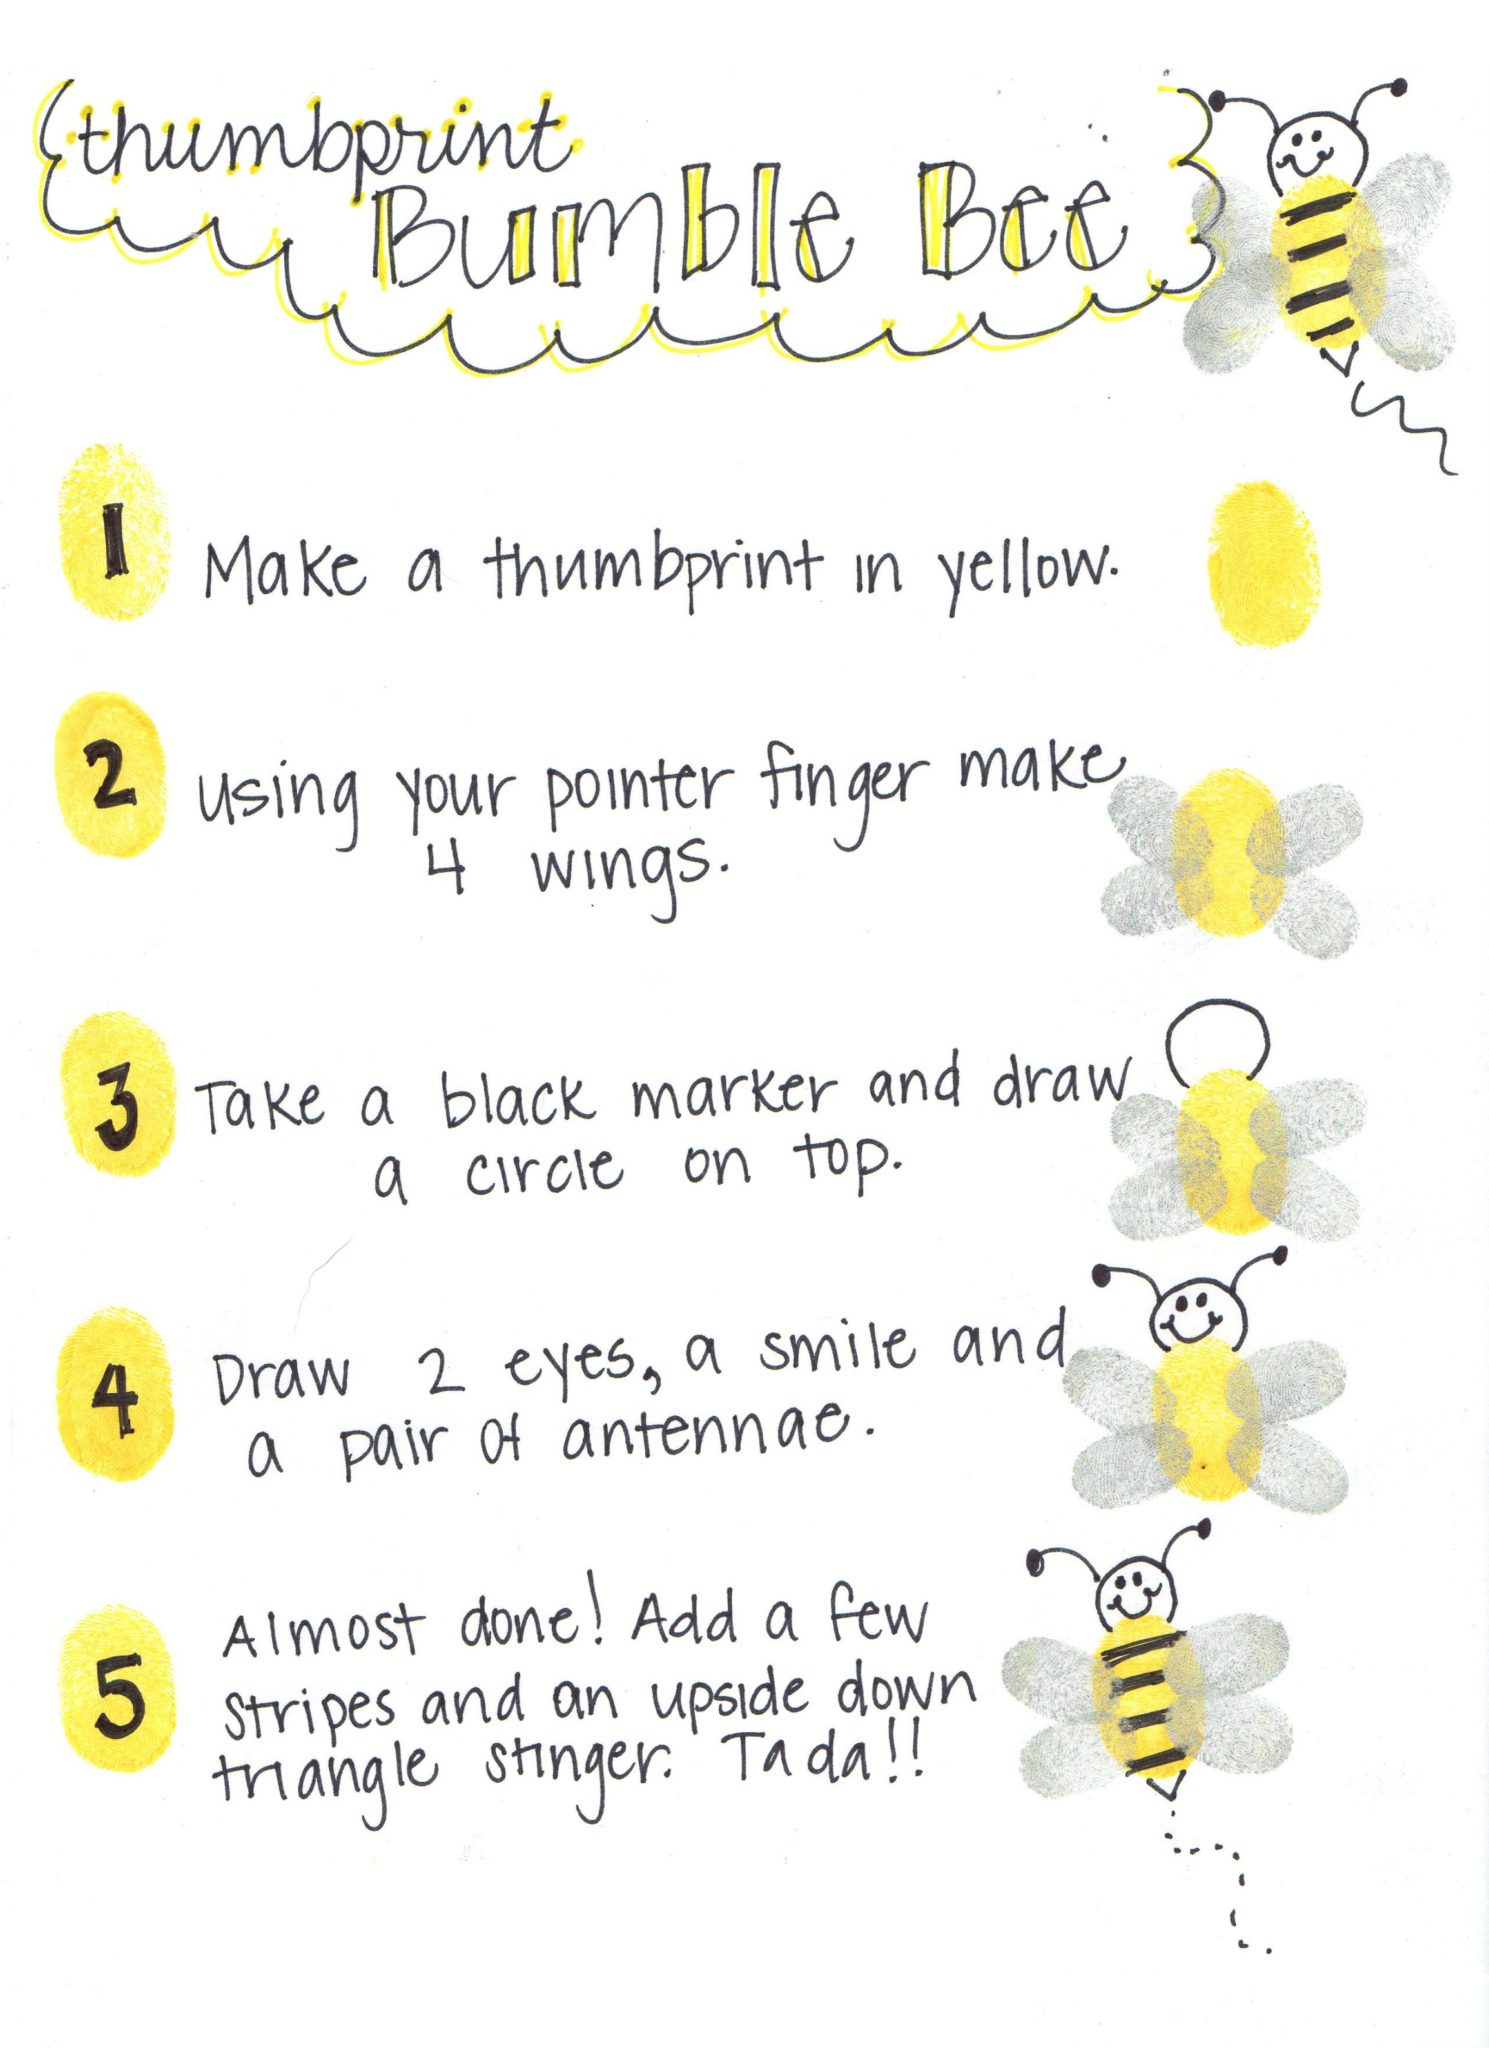 thumbprint
Bumble Bee
1 Make a thumbprint in yellow.
2 using your pointer finger make
4 wings.
3 Take a black marker and draw
a circle on top.
4 Draw 2 eyes, a smile and
a pair of antennae.
5 Almost done! Add a few
stripes and an upside down
triangle stinger. Tada!!